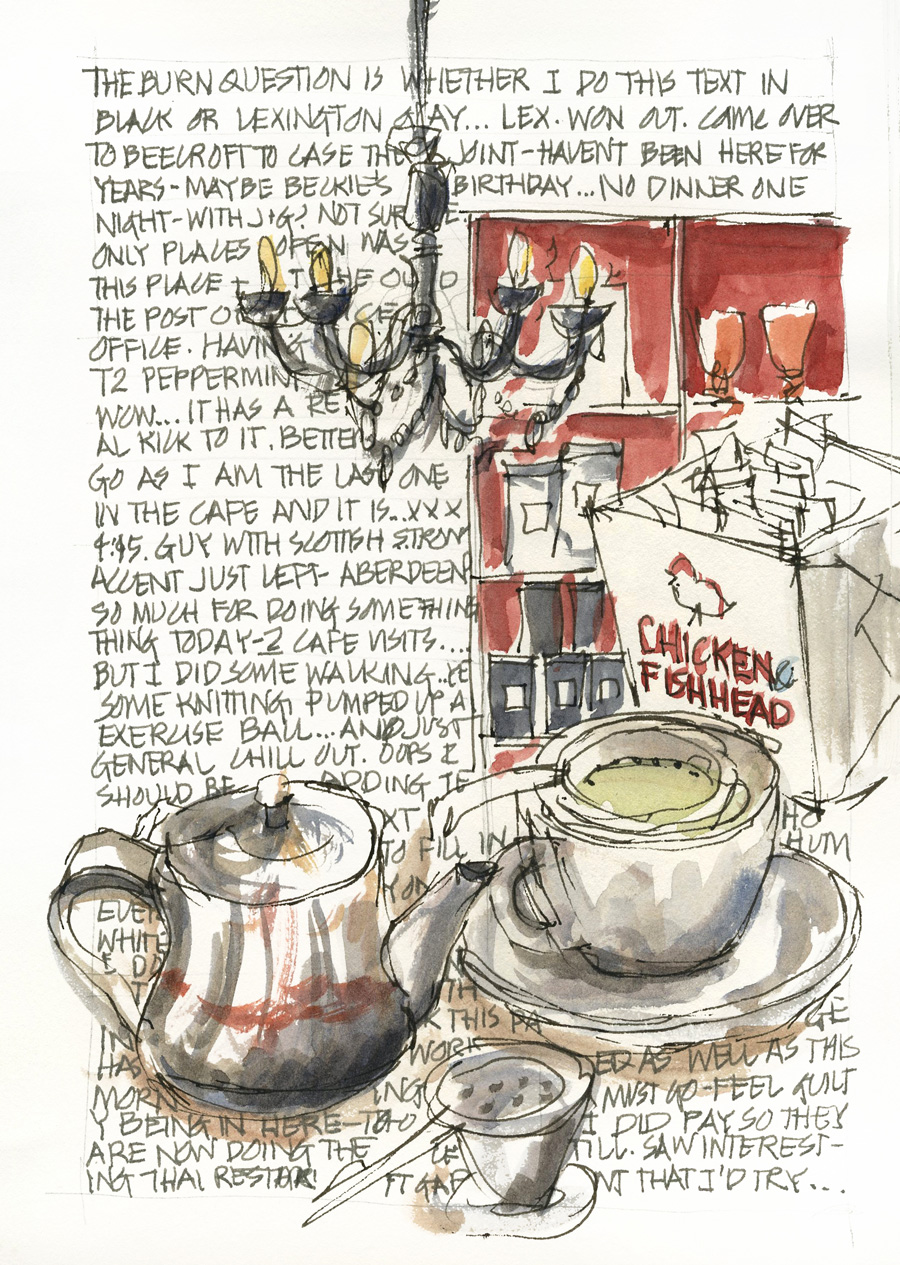 THE BURN QUESTION IS WHETHER I DO THIS TEXT IN
BLACK OR LEXINGTON GRAY... LEX. WON OUT. CAME OVER
TO BEECROFT TO CASE THE JOINT - HAVEN'T BEEN HERE FOR
YEARS - MAYBE BECKIE'S BIRTHDAY... NO DINNER ONE
NIGHT - WITH J+G? NOT SURE.
ONLY PLACES OPEN WAS
THIS PLACE + THE OLD
THE POST OFFICE
OFFICE. HAVING
T2 PEPPERMINT
WOW... IT HAS A RE
AL KICK TO IT. BETTER
GO AS I AM THE LAST ONE
IN THE CAFE AND IT IS...XXX
4:45. GUY WITH SCOTTISH STRONG
ACCENT JUST LEFT - ABERDEEN?
SO MUCH FOR DOING SOMETHING
THING TODAY - 2 CAFE VISITS....
BUT I DID SOME WALKING..
SOME KNITTING, PUMPED UP A
EXERCISE BALL... AND JUST
GENERAL CHILL OUT. OOPS I
SHOULD BE ADDING TE
XT HO
TO FILL IN HUM
YOU
EVER
WHITE
TH
IN K THIS PA GE
HAS WORK ED AS WELL AS THIS
MORN ING MUST GO - FEEL GUILT
Y BEING IN HERE - THO I DID PAY SO THEY
ARE NOW DOING THE TILL. SAW INTEREST-
ING THAI RESTAR NT THAT I'D TRY...
CHICKEN &
FISHHEAD